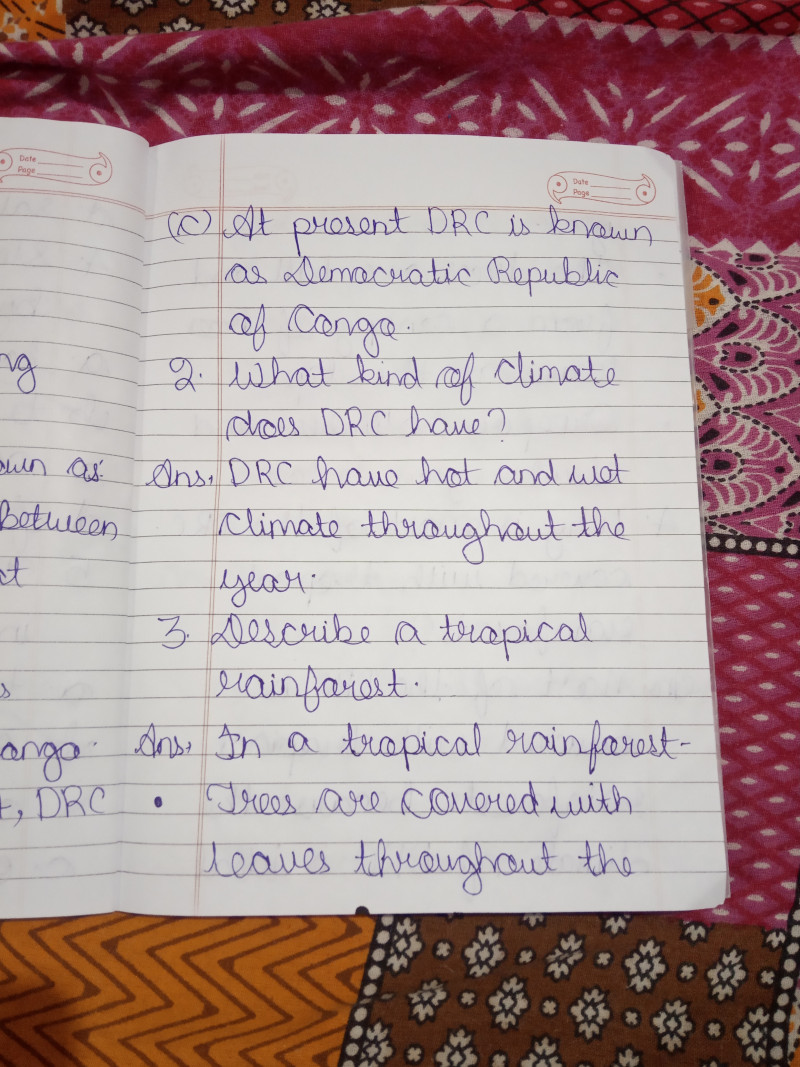 Date
Page
ng
own as
Between
ct
s
ongo.
t, DRC
Date
Page
(C) At present DRC is known
as Democratic Republic
of Congo.
2. What kind of climate
does DRC have?
Ans, DRC have hot and wet
climate throughout the
year.
3. Describe a tropical
rainforest.
Ans, In a tropical rainforest-
• Trees are covered with
leaves throughout the